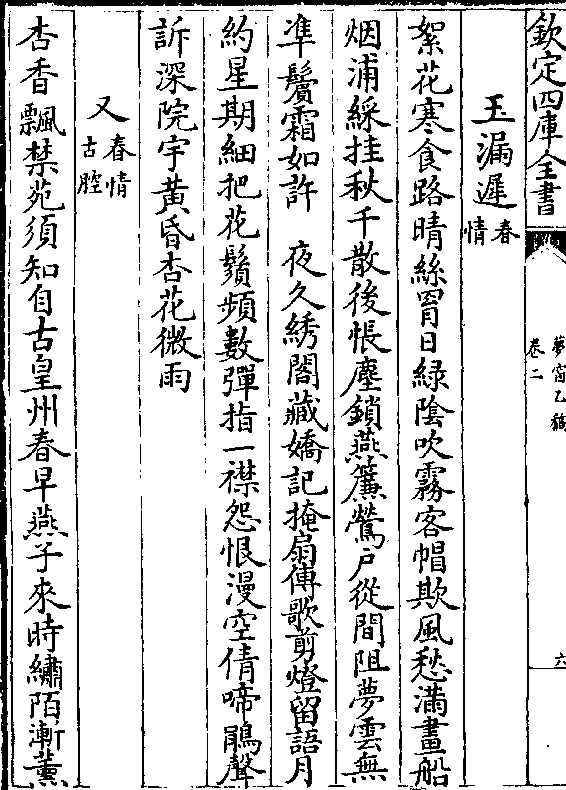 欽定四庫全書
夢窗乙稿
卷二
六
玉漏遲春情
絮花寒食路晴絲罥日緑陰吹霧客帽欺風愁滿畫船
烟浦綵挂秋千散後悵塵鎖燕簾鶯戶從間阻夢雲無
凖鬢霜如許　夜久綉閣藏嬌記掩扇傳歌剪燈留語月
約星期細把花鬚頻數彈指一襟怨恨漫空倩啼鵑聲
訴深院宇黄昏杏花微雨
又春情古腔
杏香飄禁苑須知自古皇州春早燕子來時繡陌漸薰